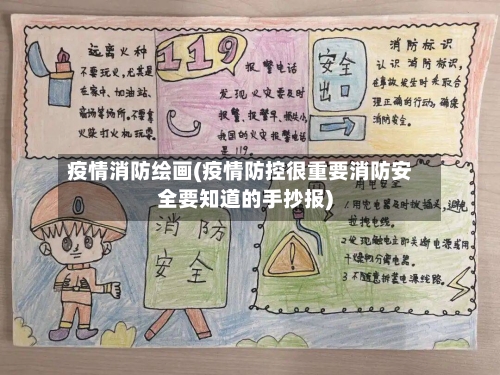 远离火种
不要玩火,尤其是
在家中、加油站、
商场等场所。不要拿
火柴打火机玩耍。
119
报警电话
发现火灾要及时
报警、报警早、损失小,
我国的火灾报警电话
是119。
安全
出口
消防标识
认识消防标识,
在事故发生时采取合
理正确的行动,确保
消防安全。
疫情消防绘画(疫情防控很重要消防安
全要知道的手抄报)
消防
安全
用电安全
1.用完电器及时拔插头,避免
拉拽电线。
2.发现触电立即关断电源或用
干燥物分离电器。
3.不随意拆装电源线路。